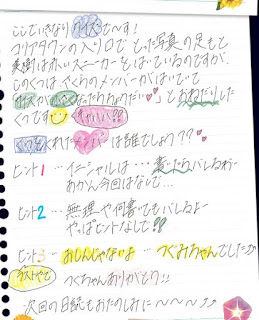 ここでいきなりクイズで〜す!
コリアタウンの入り口でとった写真の足もと
実樹は赤いスニーカーをはいているのですが、
このくつは さくらのメンバーがはいてて
サイズが小さくなったらちょうだい♥」とおねだりした
くつです キャハハ??
くつをくれたメンバーは誰でしょう???
ヒント1 …イニシャルは… 書いたらバレるわ〜
あかん今回はなしで…
ヒント2 …無理や何書いてもバレるよ〜
やっぱヒントなしで!!
ヒント3 …おしんじゃないよ… つぐみちゃんでしたっ
つぐちゃんありがとう!!
次回の日記もおたのしみに〜〜〜